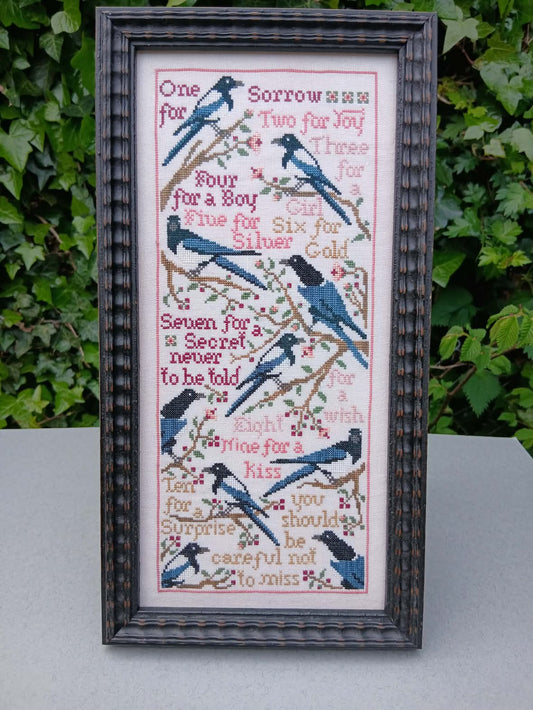 One Sorrow
for Two for Joy
Three
for
a
Girl
Four
for a Boy
Five for
Silver
Six for
Gold
Seven for a
Secret
never
to be told
Eight
for
a wish
Nine for a
Kiss
Ten
for a
Surprise
you
should
be
careful not
to miss